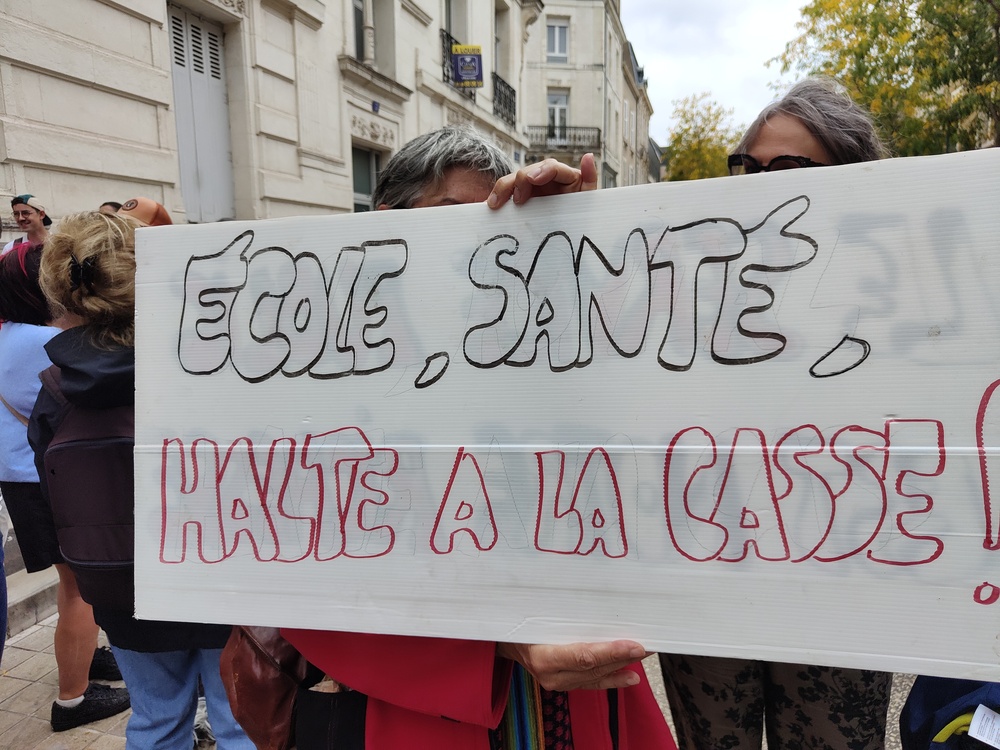 A LOUER
ÉCOLE, SANTÉ,
HALTE A LA CASSE !